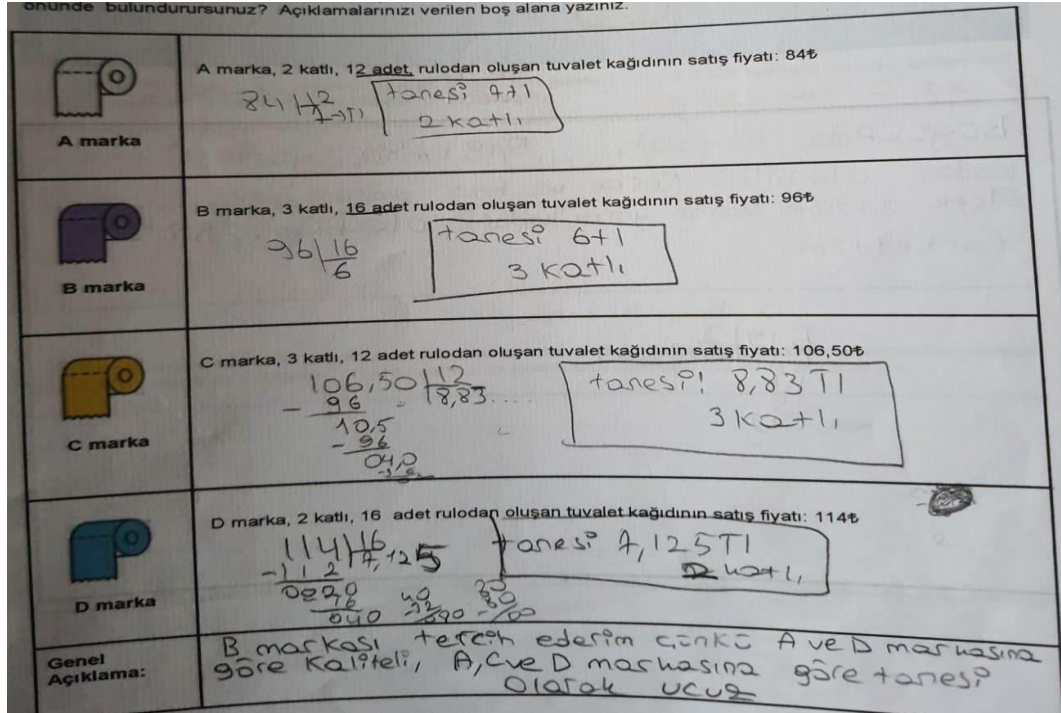 önünde bulundurursunuz? Açıklamalarınızı verilen boş alana yazınız.
A marka, 2 katlı, 12 adet, rulodan oluşan tuvalet kağıdının satış fiyatı: 84₺
84 | 12
7→Tl
tanesi 7tl
2 katlı
A marka
B marka, 3 katlı, 16 adet rulodan oluşan tuvalet kağıdının satış fiyatı: 96₺
96 | 16
6
tanesi 6tl
3 katlı
B marka
C marka, 3 katlı, 12 adet rulodan oluşan tuvalet kağıdının satış fiyatı: 106,50₺
106,50 | 12
- 96 8,83....
10,5
- 96
040
tanesi! 8,83 Tl
3 katlı
C marka
D marka, 2 katlı, 16 adet rulodan oluşan tuvalet kağıdının satış fiyatı: 114₺
114 | 16
-112 7,125
0020
16
040
tanesi 7,125Tl
2 katlı
D marka
Genel Açıklama:
B markası tercih ederim çünkü A ve D markasına
göre kaliteli, A,C ve D markasına göre tanesi
olarak ucuz